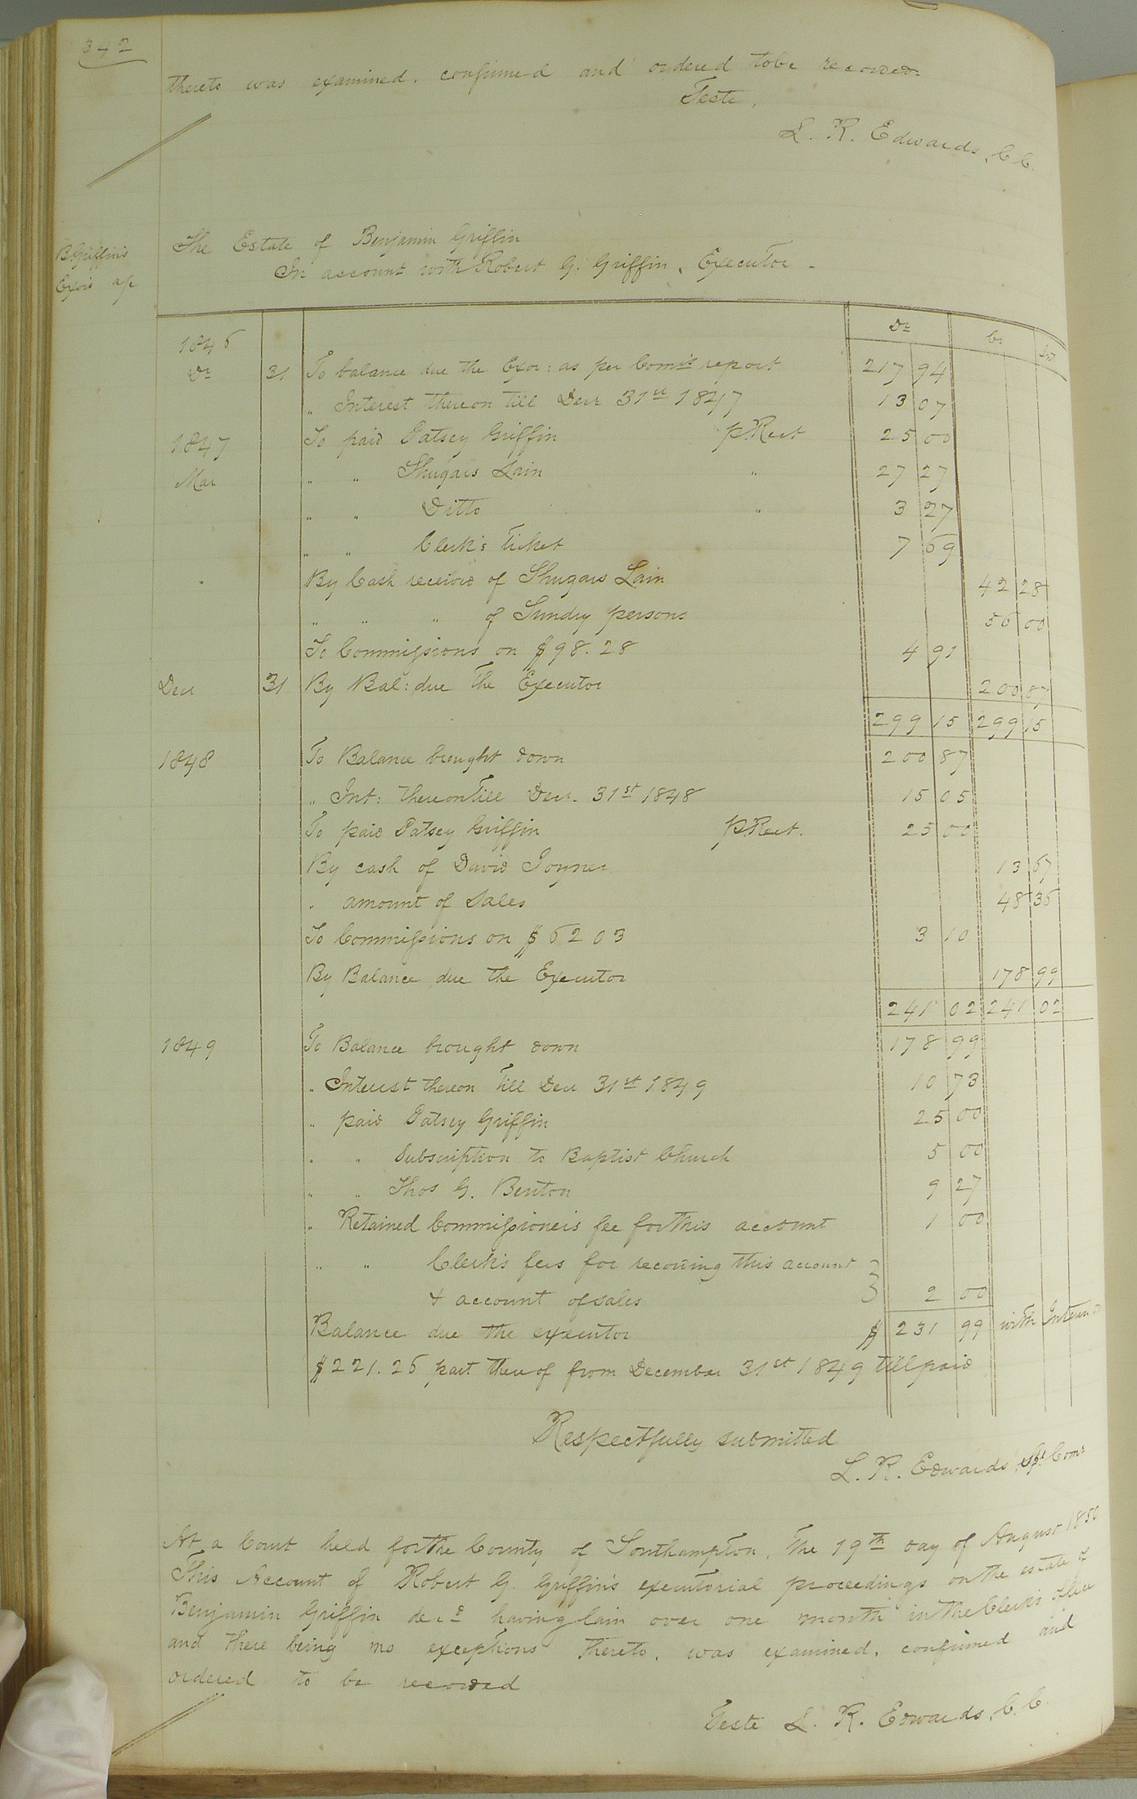 342
thereto was examined. confirmed and ordered to be recorded.
Teste,
L. R. Edwards, C. C.
B Griffin's
Exor's a/c
The Estate of Benjamin Griffin
In account with Robert G. Griffin, Executor -
Dr Cr
1846
Dr 31 To balance due the Exor: as per Com's report 217 94
" Interest thereon till Decr 31st 1847 13 07
1847 To paid Patsey Griffin p. Rect 25 00
Mar " " Shugars Lain " 27 27
" " Ditto " 3 27
" " Clerk's Ticket 7 69
By Cash received of Shugars Lain 42 28
" " " of Sundry persons 56 00
To Commissions on $98.28 4 91
Decr 31 By Bal: due the Executor 200 87
299 15 299 15
1848 To Balance brought down 200 87
" Int: thereon till Decr. 31st 1848 15 05
To paid Patsey Griffin p. Rect. 25 00
By cash of David Joyner 13 67
" amount of Sales 48 36
To Commissions on $62 03 3 10
By Balance due the Executor 178 99
241 02 241 02
1849 To Balance brought down 178 99
" Interest thereon till Decr 31st 1849 10 73
" paid Patsey Griffin 25 00
" " Subscription to Baptist Church 5 00
" " Thos G. Benton 9 27
" Retained Commissioner's fee for this account 1 00
" " Clerk's fees for recording this account
& account of sales 2 00
Balance due the executor $ 231 99 with Interest on
$221.26 part thereof from December 31st 1849 till paid
Respectfully submitted
L. R. Edwards, Spl Comr
At a Court held for the County of Southampton, the 19th day of August 1850
This Account of Robert G. Griffin's executorial proceedings on the estate of
Benjamin Griffin decd having lain over one month in the Clerk's Office
and there being no exceptions thereto, was examined, confirmed and
ordered to be recorded
Teste L. R. Edwards, C. C.